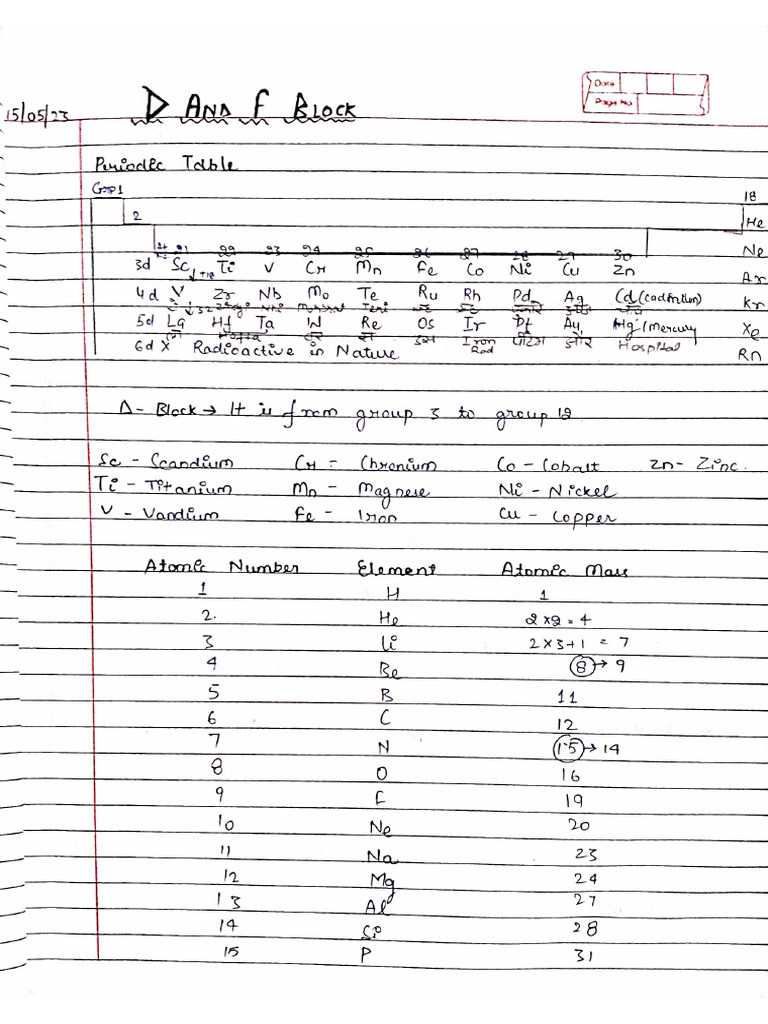 Date
Page No
15/05/23 D AND F BLOCK
Periodic Table
Grp1 18
2 He
21 22 23 24 25 26 27 28 29 30 Ne
3d Sc Ti V Cr Mn Fe Co Ni Cu Zn
Ar
4d Y Zr Nb Mo Te Ru Rh Pd Ag Cd (cadmium) Kr
5d La Hf Ta W Re Os Ir Pt Au Hg / Mercury Xe
Iron Rod और Hospital
6d X Radioactive in Nature Rn
D- Block → It is from group 3 to group 12
Sc - Scandium Cr = Chronium Co - Cobalt Zn- Zinc.
Ti - Titanium Mn - Magnese Ni - Nickel
V - Vandium Fe - Iron Cu - Copper
Atomic Number Element Atomic Mass
1 H 1
2. He 2×2 = 4
3 Li 2×3+1 = 7
4 Be 8 → 9
5 B 11
6 C 12
7 N 15 → 14
8 O 16
9 F 19
10 Ne 20
11 Na 23
12 Mg 24
13 Al 27
14 Si 28
15 P 31